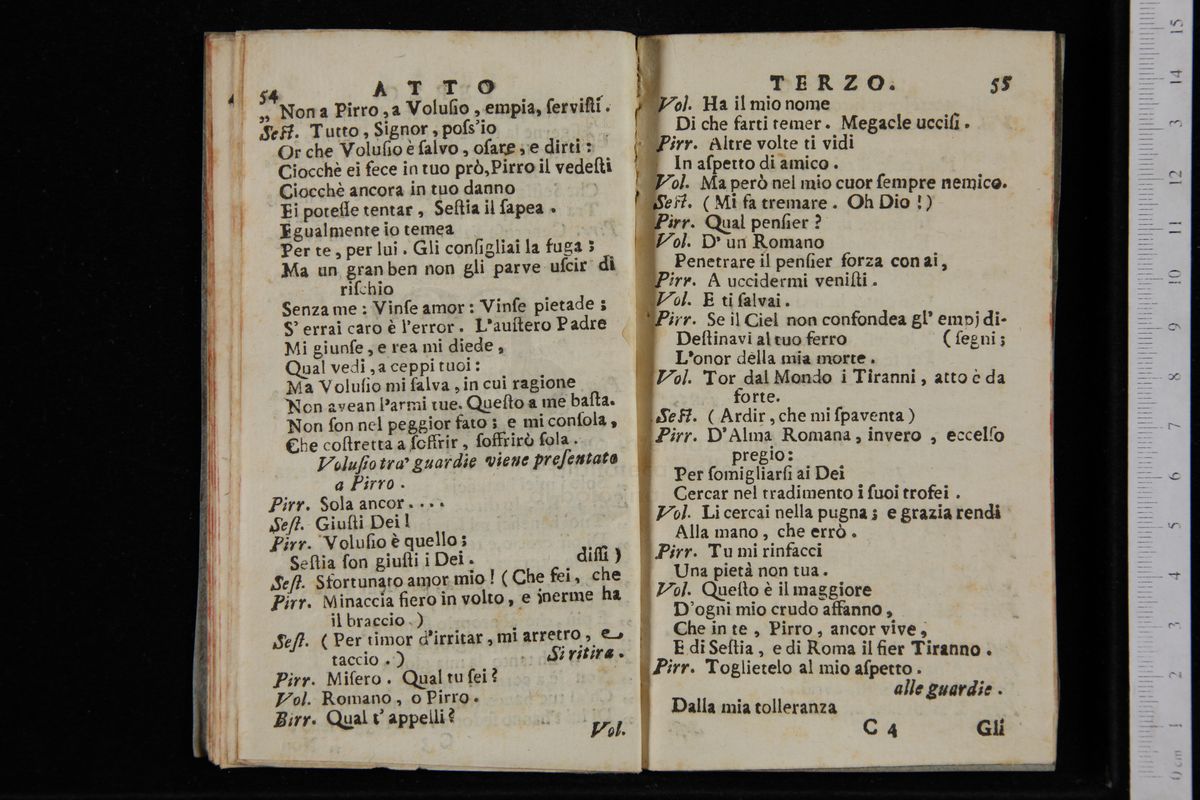 54 ATTO
„ Non a Pirro, a Voluſio, empia, ſerviſti.
Seſt. Tutto, Signor, poſs'io
Or che Voluſio è ſalvo, oſare, e dirti:
Ciocchè ei fece in tuo prò, Pirro il vedeſti
Ciocchè ancora in tuo danno
Ei poteſſe tentar, Seſtia il ſapea.
Egualmente io temea
Per te, per lui. Gli conſigliai la fuga;
Ma un gran ben non gli parve uſcir di
riſchio
Senza me: Vinſe amor: Vinſe pietade;
S' errai caro è l'error. L'auſtero Padre
Mi giunſe, e rea mi diede,
Qual vedi, a ceppi tuoi:
Ma Voluſio mi ſalva, in cui ragione
Non avean l'armi tue. Queſto a me baſta.
Non ſon nel peggior fato; e mi conſola,
Che coſtretta a ſoffrir, ſoffrirò ſola.
Voluſio tra' guardie viene preſentato
a Pirro.
Pirr. Sola ancor....
Seſt. Giuſti Dei!
Pirr. Voluſio è quello;
Seſtia ſon giuſti i Dei. diſſi)
Seſt. Sfortunato amor mio! (Che fei, che
Pirr. Minaccia fiero in volto, e inerme ha
il braccio.)
Seſt. (Per timor d'irritar, mi arretro, e
taccio.) Si ritira.
Pirr. Miſero. Qual tu ſei?
Vol. Romano, o Pirro.
Birr. Qual t' appelli?
Vol.
TERZO. 55
Vol. Ha il mio nome
Di che farti temer. Megacle ucciſi.
Pirr. Altre volte ti vidi
In aſpetto di amico.
Vol. Ma però nel mio cuor ſempre nemico.
Seſt. (Mi fa tremare. Oh Dio!)
Pirr. Qual penſier?
Vol. D' un Romano
Penetrare il penſier forza con ai,
Pirr. A uccidermi veniſti.
Vol. E ti ſalvai.
Pirr. Se il Ciel non confondea gl' empj di-
Deſtinavi al tuo ferro (ſegni;
L'onor della mia morte.
Vol. Tor dal Mondo i Tiranni, atto è da
forte.
Seſt. (Ardir, che mi ſpaventa)
Pirr. D'Alma Romana, invero, eccelſo
pregio:
Per ſomigliarſi ai Dei
Cercar nel tradimento i ſuoi trofei.
Vol. Li cercai nella pugna; e grazia rendi
Alla mano, che errò.
Pirr. Tu mi rinfacci
Una pietà non tua.
Vol. Queſto è il maggiore
D'ogni mio crudo affanno,
Che in te, Pirro, ancor vive,
E di Seſtia, e di Roma il fier Tiranno.
Pirr. Toglietelo al mio aſpetto.
alle guardie.
Dalla mia tolleranza
C 4 Gli